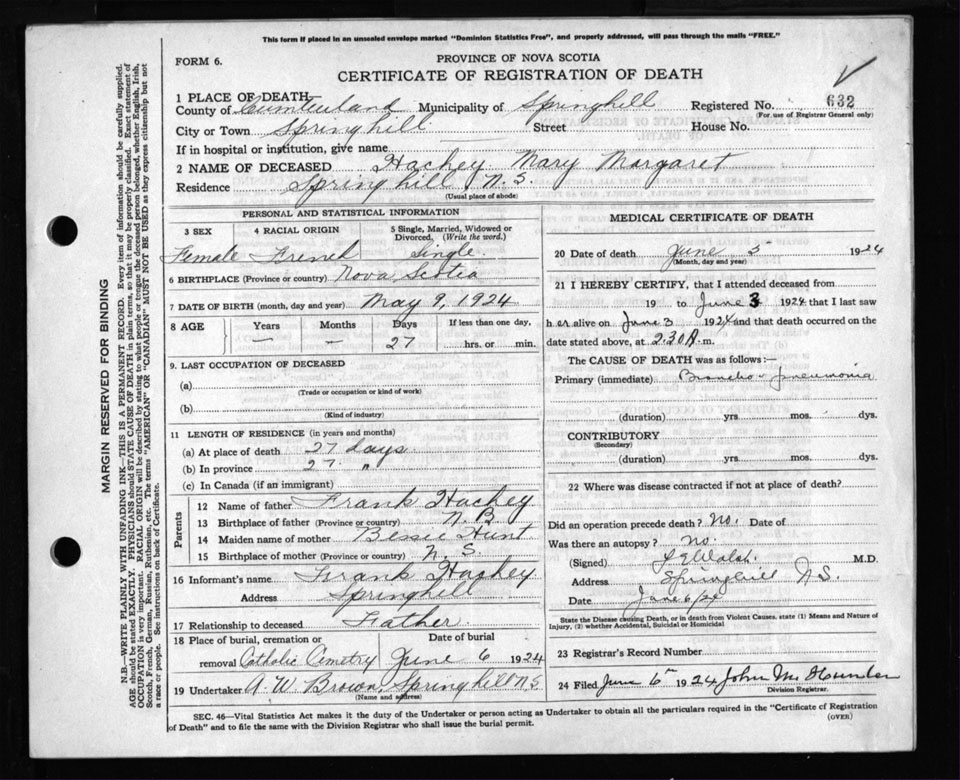 This form if placed in an unsealed envelope marked "Dominion Statistics Free", and properly addressed, will pass through the mails "FREE."
FORM 6.
PROVINCE OF NOVA SCOTIA
CERTIFICATE OF REGISTRATION OF DEATH
1 PLACE OF DEATH—
County of Cumberland Municipality of Springhill Registered No. 632
(For use of Registrar General only)
City or Town Springhill Street House No.
If in hospital or institution, give name
2 NAME OF DECEASED Hachey Mary Margaret
Residence Springhill N.S.
(Usual place of abode)
PERSONAL AND STATISTICAL INFORMATION
3 SEX 4 RACIAL ORIGIN 5 Single, Married, Widowed or Divorced. (Write the word.)
Female French Single
6 BIRTHPLACE (Province or country) Nova Scotia
7 DATE OF BIRTH (month, day and year) May 9, 1924
8 AGE Years Months Days If less than one day,
— — 27 hrs. or min.
9. LAST OCCUPATION OF DECEASED
(a)
(Trade or occupation or kind of work)
(b)
(Kind of industry)
11 LENGTH OF RESIDENCE (in years and months)
(a) At place of death 27 days
(b) In province 27 "
(c) In Canada (if an immigrant)
Parents
12 Name of father Frank Hachey
13 Birthplace of father (Province or country) N.B.
14 Maiden name of mother Bessie Hunt
15 Birthplace of mother (Province or country) N.S.
16 Informant's name Frank Hachey
Address Springhill
17 Relationship to deceased Father
18 Place of burial, cremation or removal Catholic Cemetry
Date of burial June 6 1924
19 Undertaker A W Brown, Springhill N.S.
(Name and address)
MEDICAL CERTIFICATE OF DEATH
20 Date of death June 5 1924
(Month, day and year)
21 I HEREBY CERTIFY, that I attended deceased from
19 to June 3 1924 that I last saw
h er alive on June 3 1924 and that death occurred on the
date stated above, at 2.30 A.m.
The CAUSE OF DEATH was as follows:—
Primary (immediate) Broncho-pneumonia
(duration) yrs. mos. dys.
CONTRIBUTORY
(Secondary)
(duration) yrs. mos. dys.
22 Where was disease contracted if not at place of death?
Did an operation precede death? No. Date of
Was there an autopsy? No.
(Signed) Walsh M.D.
Address Springhill N.S.
Date June 6/24
State the Disease causing Death, or in death from Violent Causes, state (1) Means and Nature of
Injury, (2) whether Accidental, Suicidal or Homicidal
23 Registrar's Record Number
24 Filed June 6th 1924 John M Hunter
Division Registrar.
SEC. 46—Vital Statistics Act makes it the duty of the Undertaker or person acting as Undertaker to obtain all the particulars required in the "Certificate of Registration
of Death" and to file the same with the Division Registrar who shall issue the burial permit.
(OVER)
MARGIN RESERVED FOR BINDING
N.B.—WRITE PLAINLY WITH UNFADING INK—THIS IS A PERMANENT RECORD. Every item of information should be carefully supplied.
AGE should be stated EXACTLY. PHYSICIANS should STATE CAUSE OF DEATH in plain terms, so that it may be properly classified. Exact statement of
OCCUPATION is very important. RACIAL ORIGIN will be described by stating to what people or tongue the deceased person belonged, whether English, Irish,
Scotch, French, German, Russian, Ruthenian, etc. The terms "AMERICAN" OR "CANADIAN" MUST NOT BE USED as they express citizenship but not
a race or people. See instructions on back of Certificate.